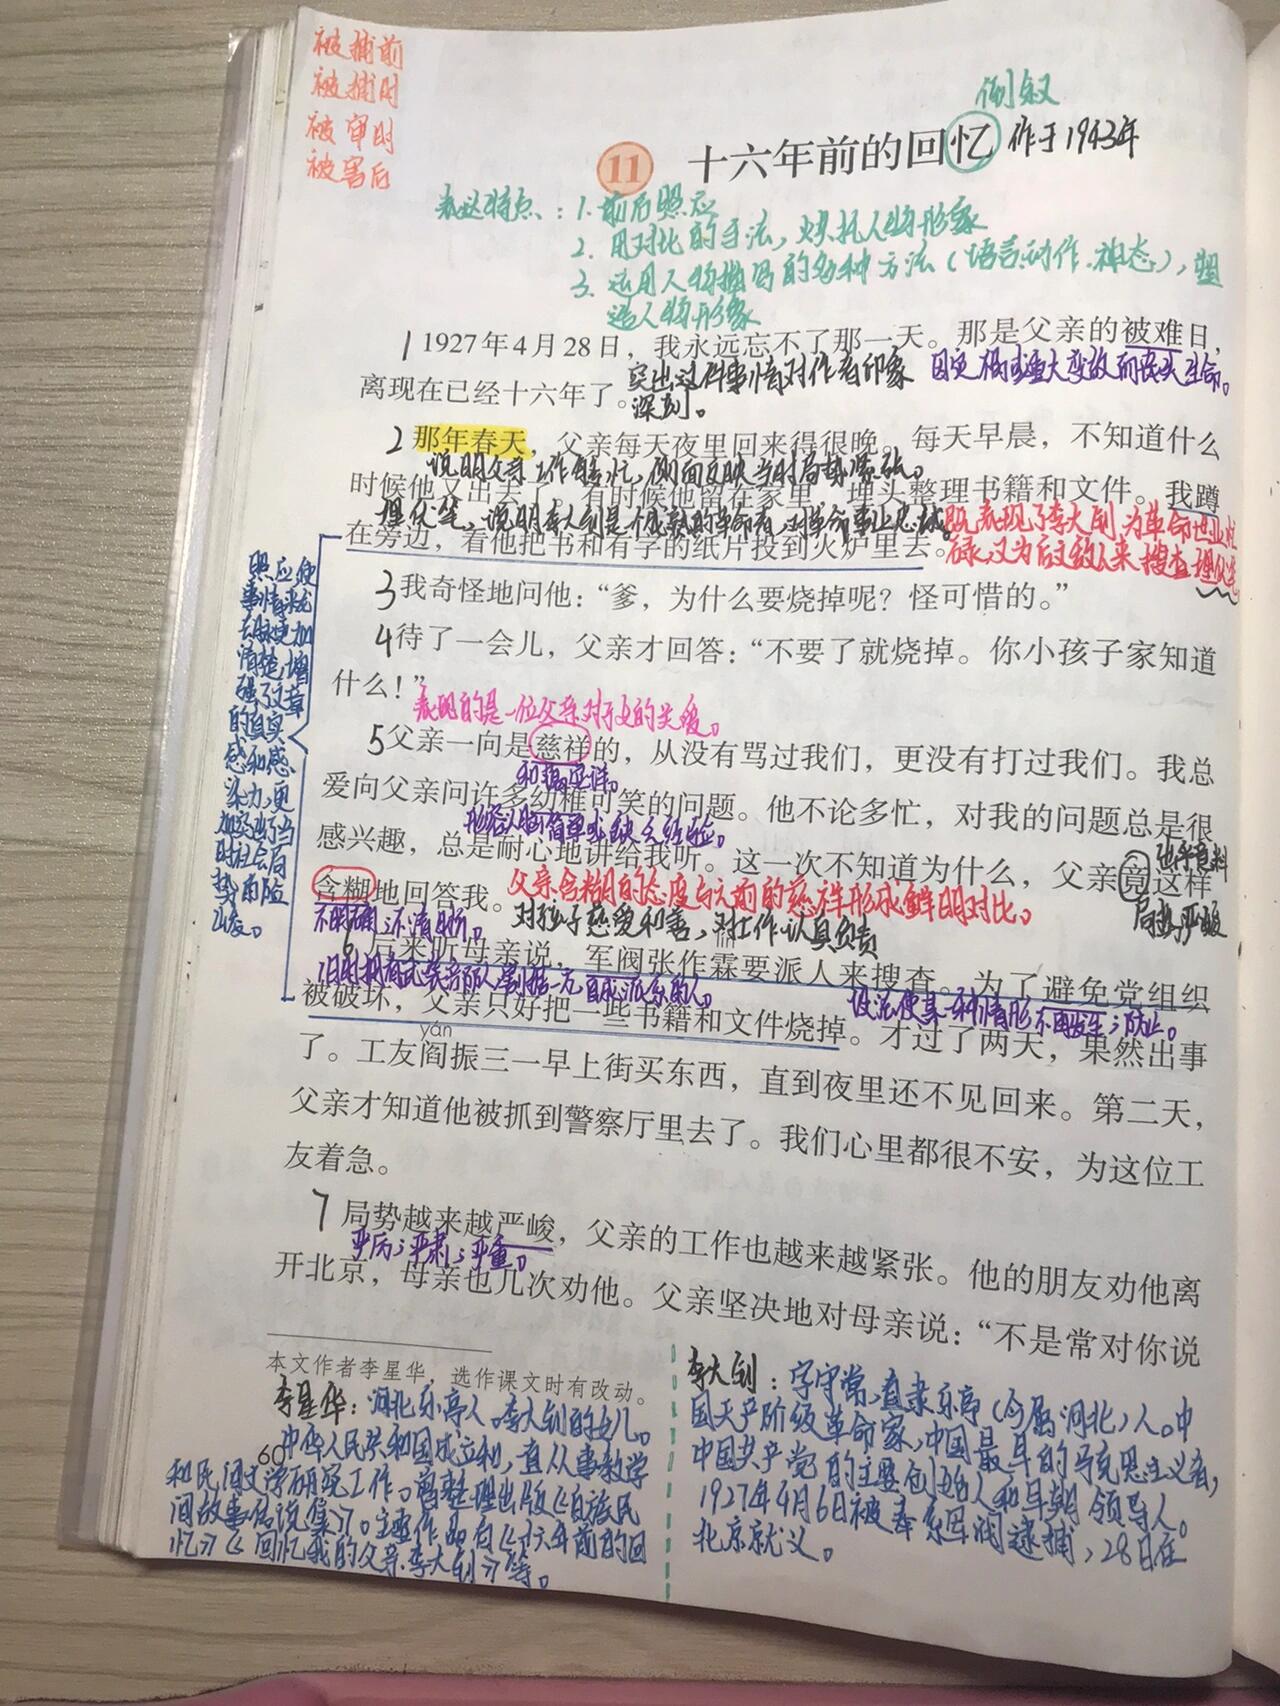 被捕前
被捕时
被审时
被害后
倒叙
11 十六年前的回忆 作于1943年
表达特点：1. 前后照应
2. 用对比的手法，烘托人物形象
3. 运用人物描写的多种方法（语言.动作.神态），塑
造人物形象
1 1927年4月28日，我永远忘不了那一天。那是父亲的被难日，
离现在已经十六年了。
突出这件事情对作者印象
深刻。
因灾祸或重大变故而丧失生命。
2 那年春天，父亲每天夜里回来得很晚。每天早晨，不知道什么
说明父亲工作繁忙，侧面反映当时局势紧张。
时候他又出去了。有时候他留在家里，埋头整理书籍和文件。我蹲
埋伏笔，说明李大钊是个成熟的革命者，对革命事业忠诚。
在旁边，看他把书和有字的纸片投到火炉里去。
既表现了李大钊为革命事业忙
碌，又为后文敌人来搜查埋伏笔
3 我奇怪地问他：“爹，为什么要烧掉呢？怪可惜的。”
4 待了一会儿，父亲才回答：“不要了就烧掉。你小孩子家知道
什么！”
表现的是一位父亲对子女的关爱。
照应使
事情来龙
去脉更加
清楚，增
强了文章
的真实
感和感
染力，更
加突出了当
时社会局
势的险
峻。
5 父亲一向是慈祥的，从没有骂过我们，更没有打过我们。我总
和蔼安详。
爱向父亲问许多幼稚可笑的问题。他不论多忙，对我的问题总是很
形容头脑简单或缺乏经验。
感兴趣，总是耐心地讲给我听。这一次不知道为什么，父亲竟这样
出乎意料
含糊地回答我。
父亲含糊的态度与之前的慈祥形成鲜明对比。
不明确；不清晰。
对孩子慈爱和善，对工作认真负责
局势严峻
6 后来听母亲说，军阀张作霖要派人来搜查。为了避免党组织
旧时拥有武装部队，割据一方，自成派系的人。
设法使某种情形不再发生；防止。
被破坏，父亲只好把一些书籍和文件烧掉。才过了两天，果然出事
yán
了。工友阎振三一早上街买东西，直到夜里还不见回来。第二天，
父亲才知道他被抓到警察厅里去了。我们心里都很不安，为这位工
友着急。
7 局势越来越严峻，父亲的工作也越来越紧张。他的朋友劝他离
严厉；严肃；严重。
开北京，母亲也几次劝他。父亲坚决地对母亲说：“不是常对你说
本文作者李星华，选作课文时有改动。
李星华：河北乐亭人。李大钊的女儿。
中华人民共和国成立后，一直从事教学
60
和民间文学研究工作。曾整理出版《白族民
间故事传说集》。主要作品有《十六年前的回
忆》《回忆我的父亲李大钊》等。
李大钊：字守常，直隶乐亭（今属河北）人。中
国无产阶级革命家，中国最早的马克思主义者，
中国共产党的主要创始人和早期领导人。
1927年4月6日被奉系军阀逮捕，28日在
北京就义。